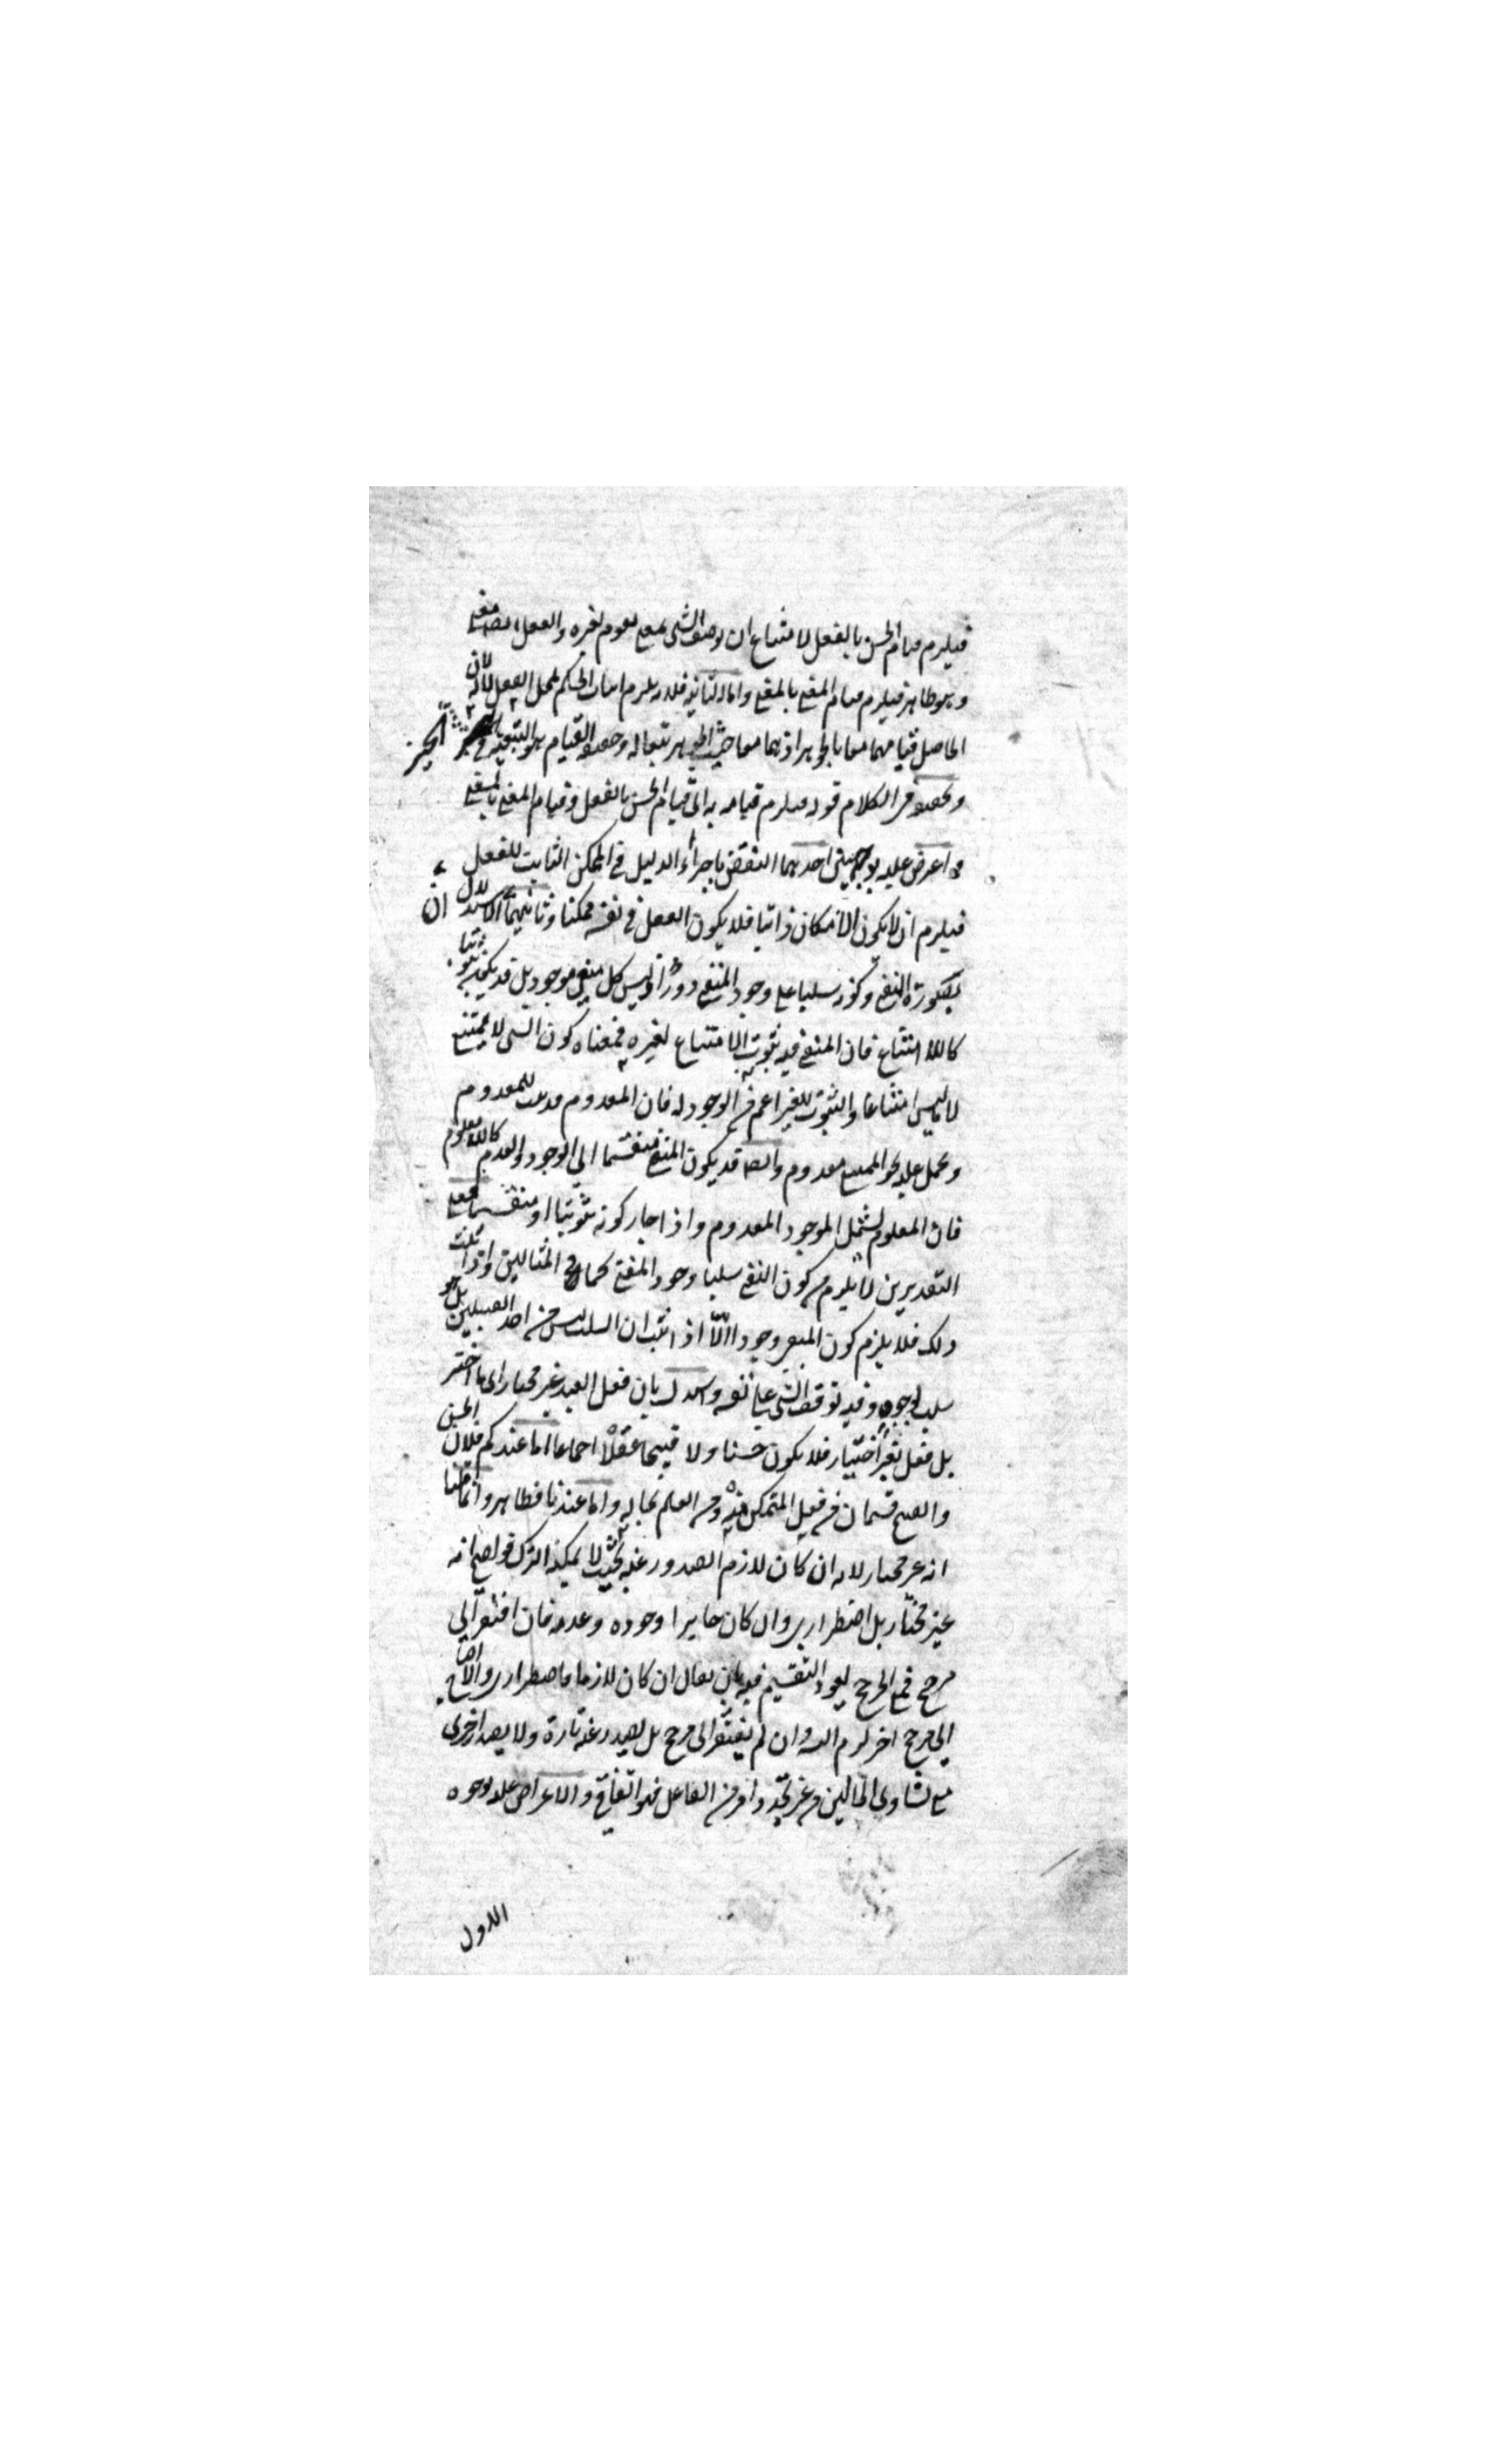 فيلزم قيام الحسن بالفعل لامتناع ان يوصف الشي بمعنى يقوم لغيره والفعل ايضا معنى
وهو ظاهر فيلزم قيام المعنى بالمعنى واما الثانية فلانه يلزم اثبات الحكم لمحل الفعل لا له لان
الحاصل قيامهما معا بالجوهر اذ هما معا حيث الجوهر تبعا له وحقيقة القيام هو التبعية في التحيز
وتحقيق الكلام قوله فيلزم قيامه به اي قيام الحسن بالفعل وقيام المعنى بالمعنى
واعترض عليه بوجهين احدهما النقض باجراء الدليل في الممكن الثابت للفعل
فيلزم ان لا يكون الامكان ذاتيا فلا يكون الفعل في نفسه ممكنا وثانيهما ان الاستدلال
بصورة النفي وكونه سلبيا على وجود المنفي دور اذ ليس كل منفي موجود بل قد يكون ثبوتيا
كاللا امتناع فان المنفي فيه ثبوت الامتناع لغيره فمعناه كون الشي لا يمتنع
لا ما ليس امتناعا والثبوت للغير اعم من الوجود له فان المعدوم قد يثبت للمعدوم
ويحمل عليه نحو الممتنع معدوم وايضا قد يكون المنفي منقسما الي الوجود والعدم كاللا معلوم
فان المعلوم يشمل الموجود المعدوم واذا جاز كونه ثبوتيا او منقسما فعلى
التقديرين لا يلزم من كون النفي سلبا وجود المنفي كما في المثالين واذا ثبت
ذلك فلا يلزم كون المنفي وجودا الا اذا ثبت ان السلب ليس من احد القبيلين بل هو
سلب لوجود وفيه توقف الشي على نفسه واستدل بان فعل العبد غير مختار اي ما اختير
بل فعل بغير اختيار فلا يكون حسنا ولا قبيحا عقلا اجماعا اما عندكم فلان الحسن
والقبح قسمان من فعل المتمكن منه ومن العلم بحاله واما عندنا فظاهر وانما قلنا
انه غير مختار لانه ان كان لازم الصدور عنه بحيث لا يمكنه الترك فواضح انه
غير مختار بل اضطراري وان كان جايزا وجوده وعدمه فان افتقر الي
مرجح فمع المرجح يعود التقسيم فيه بان يقال ان كان لازما فاضطراري والا احتاج
الي مرجح اخر لزم التس وان لم يفتقر الى مرجح بل يصدر عنه تارة ولا يصدر اخرى
مع تساوي الحالين من غير تجدد امر من الفاعل فهو اتفاقي والاعتراض عليه بوجوه
الاول